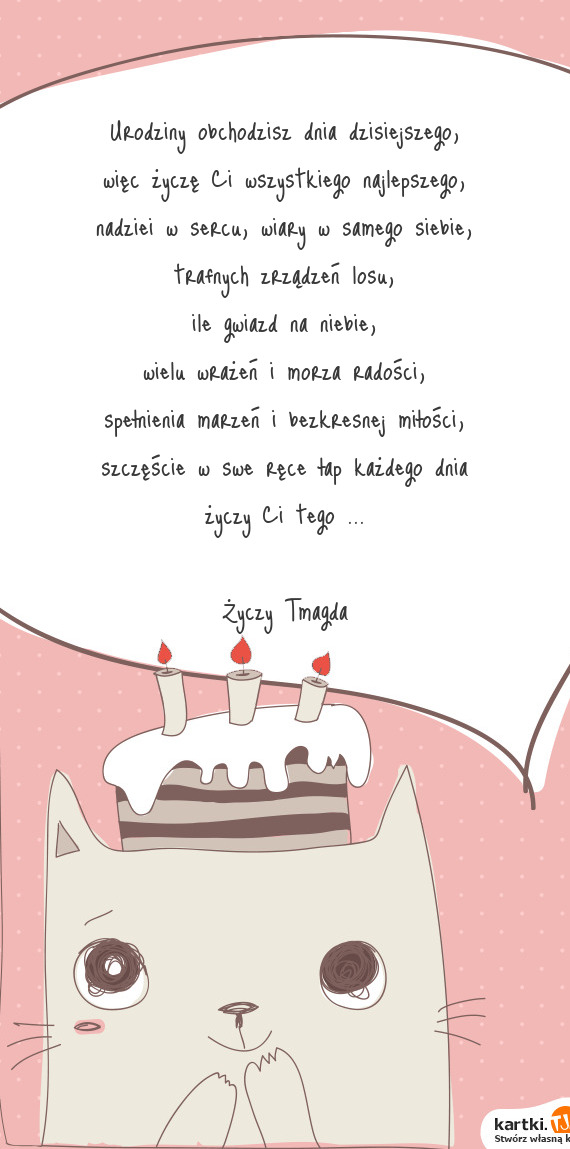 Urodziny obchodzisz dnia dzisiejszego,
więc życzę Ci wszystkiego najlepszego,
nadziei w sercu, wiary w samego siebie,
trafnych zrządzeń losu,
ile gwiazd na niebie,
wielu wrażeń i morza radości,
spełnienia marzeń i bezkresnej miłości,
szczęście w swe ręce łap każdego dnia
życzy Ci tego ...
Życzy Tmagda
kartki.TJ
Stwórz własną k